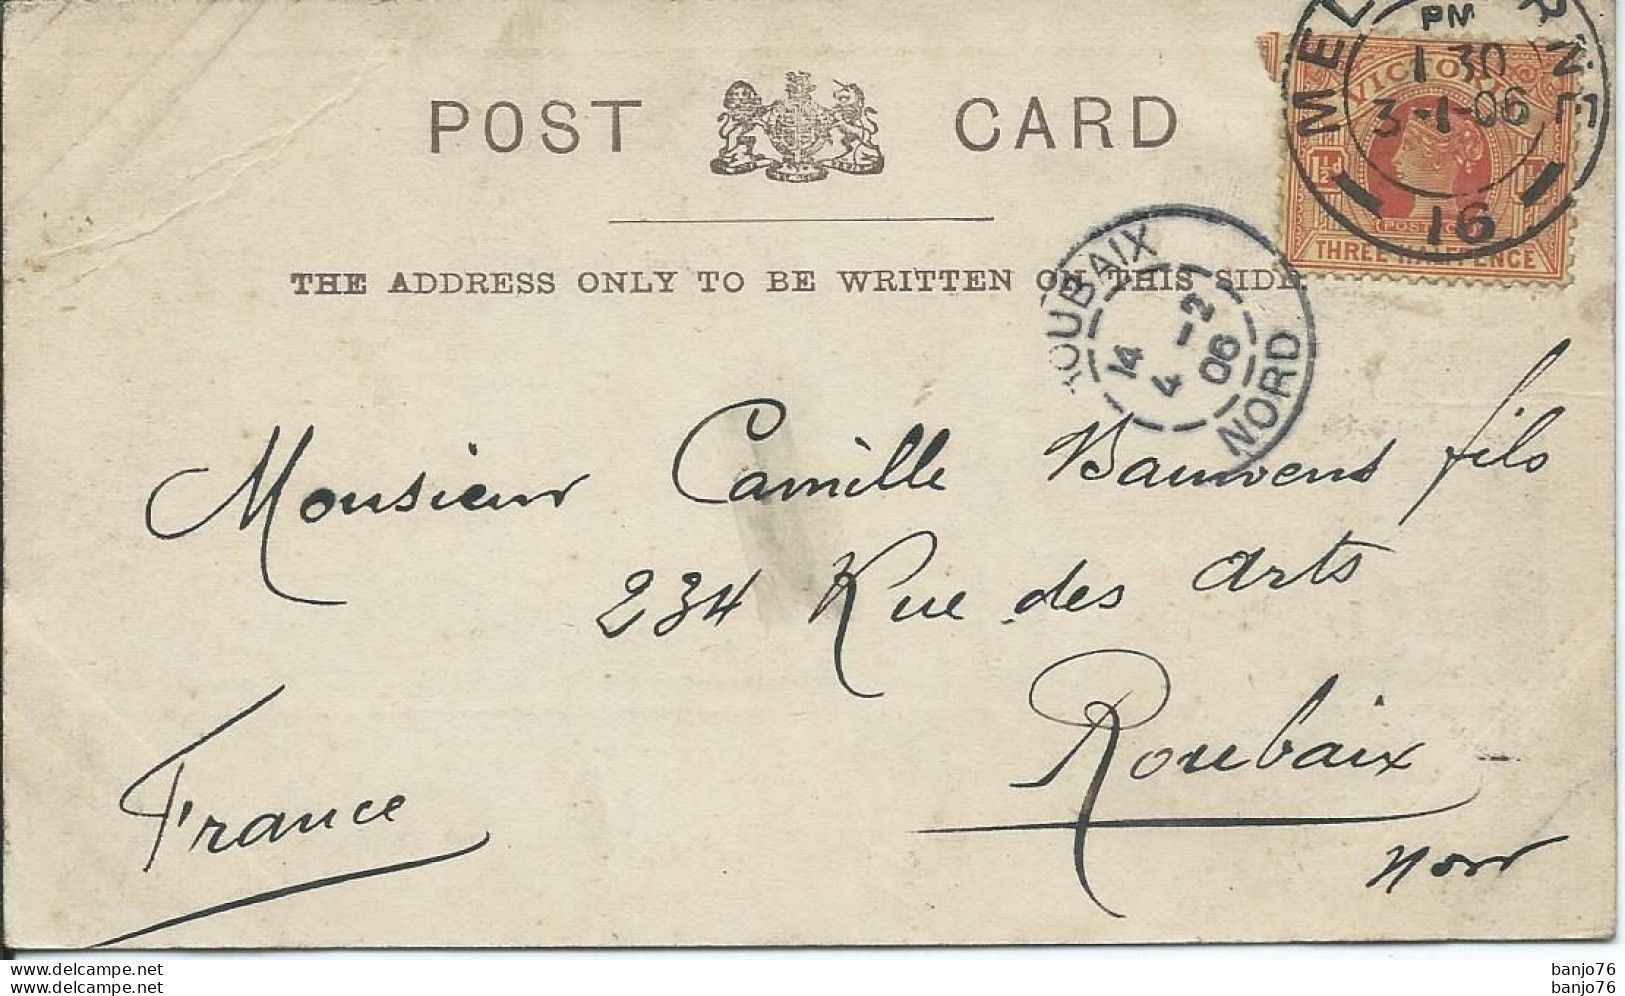 POST CARD
THE ADDRESS ONLY TO BE WRITTEN ON THIS SIDE.
PM
1 30
3-1-06
16
VICTOR
1½d
POSTAGE
THREE HALFPENCE
ROUBAIX
14
4 -2
06
NORD
Monsieur Camille Bauwens fils
234 Rue des Arts
Roubaix
Nord
France
www.delcampe.net
www.delcampe.net
banjo76
banjo76